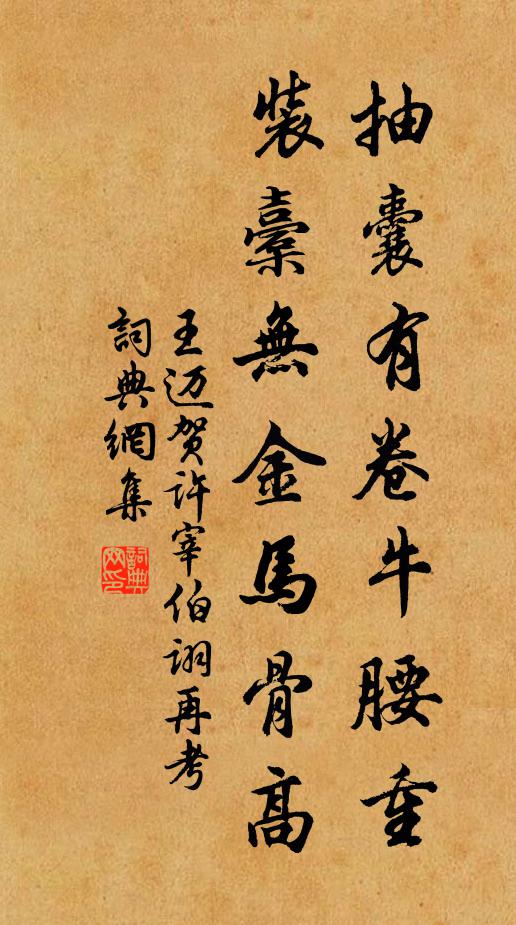 抽囊有卷牛腰重
裝橐無金馬骨高
王迈贺许宰伯詡再考
詞典網集
詞典網印